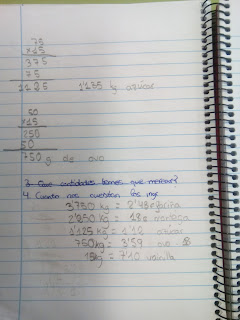 75
x 15
375
75
1125 1'125 kg azúcar
50
x 15
250
50
750 g de ovo
3. Que cantidades temos que mercar?
4. Canto nos custan os ing
3,750 kg = 2'48€
2'250 kg = 18€ manteiga
1'125 kg = 1'12 azúcar
750kg = 3'59 ovo
15kg = 7'10 vainilla